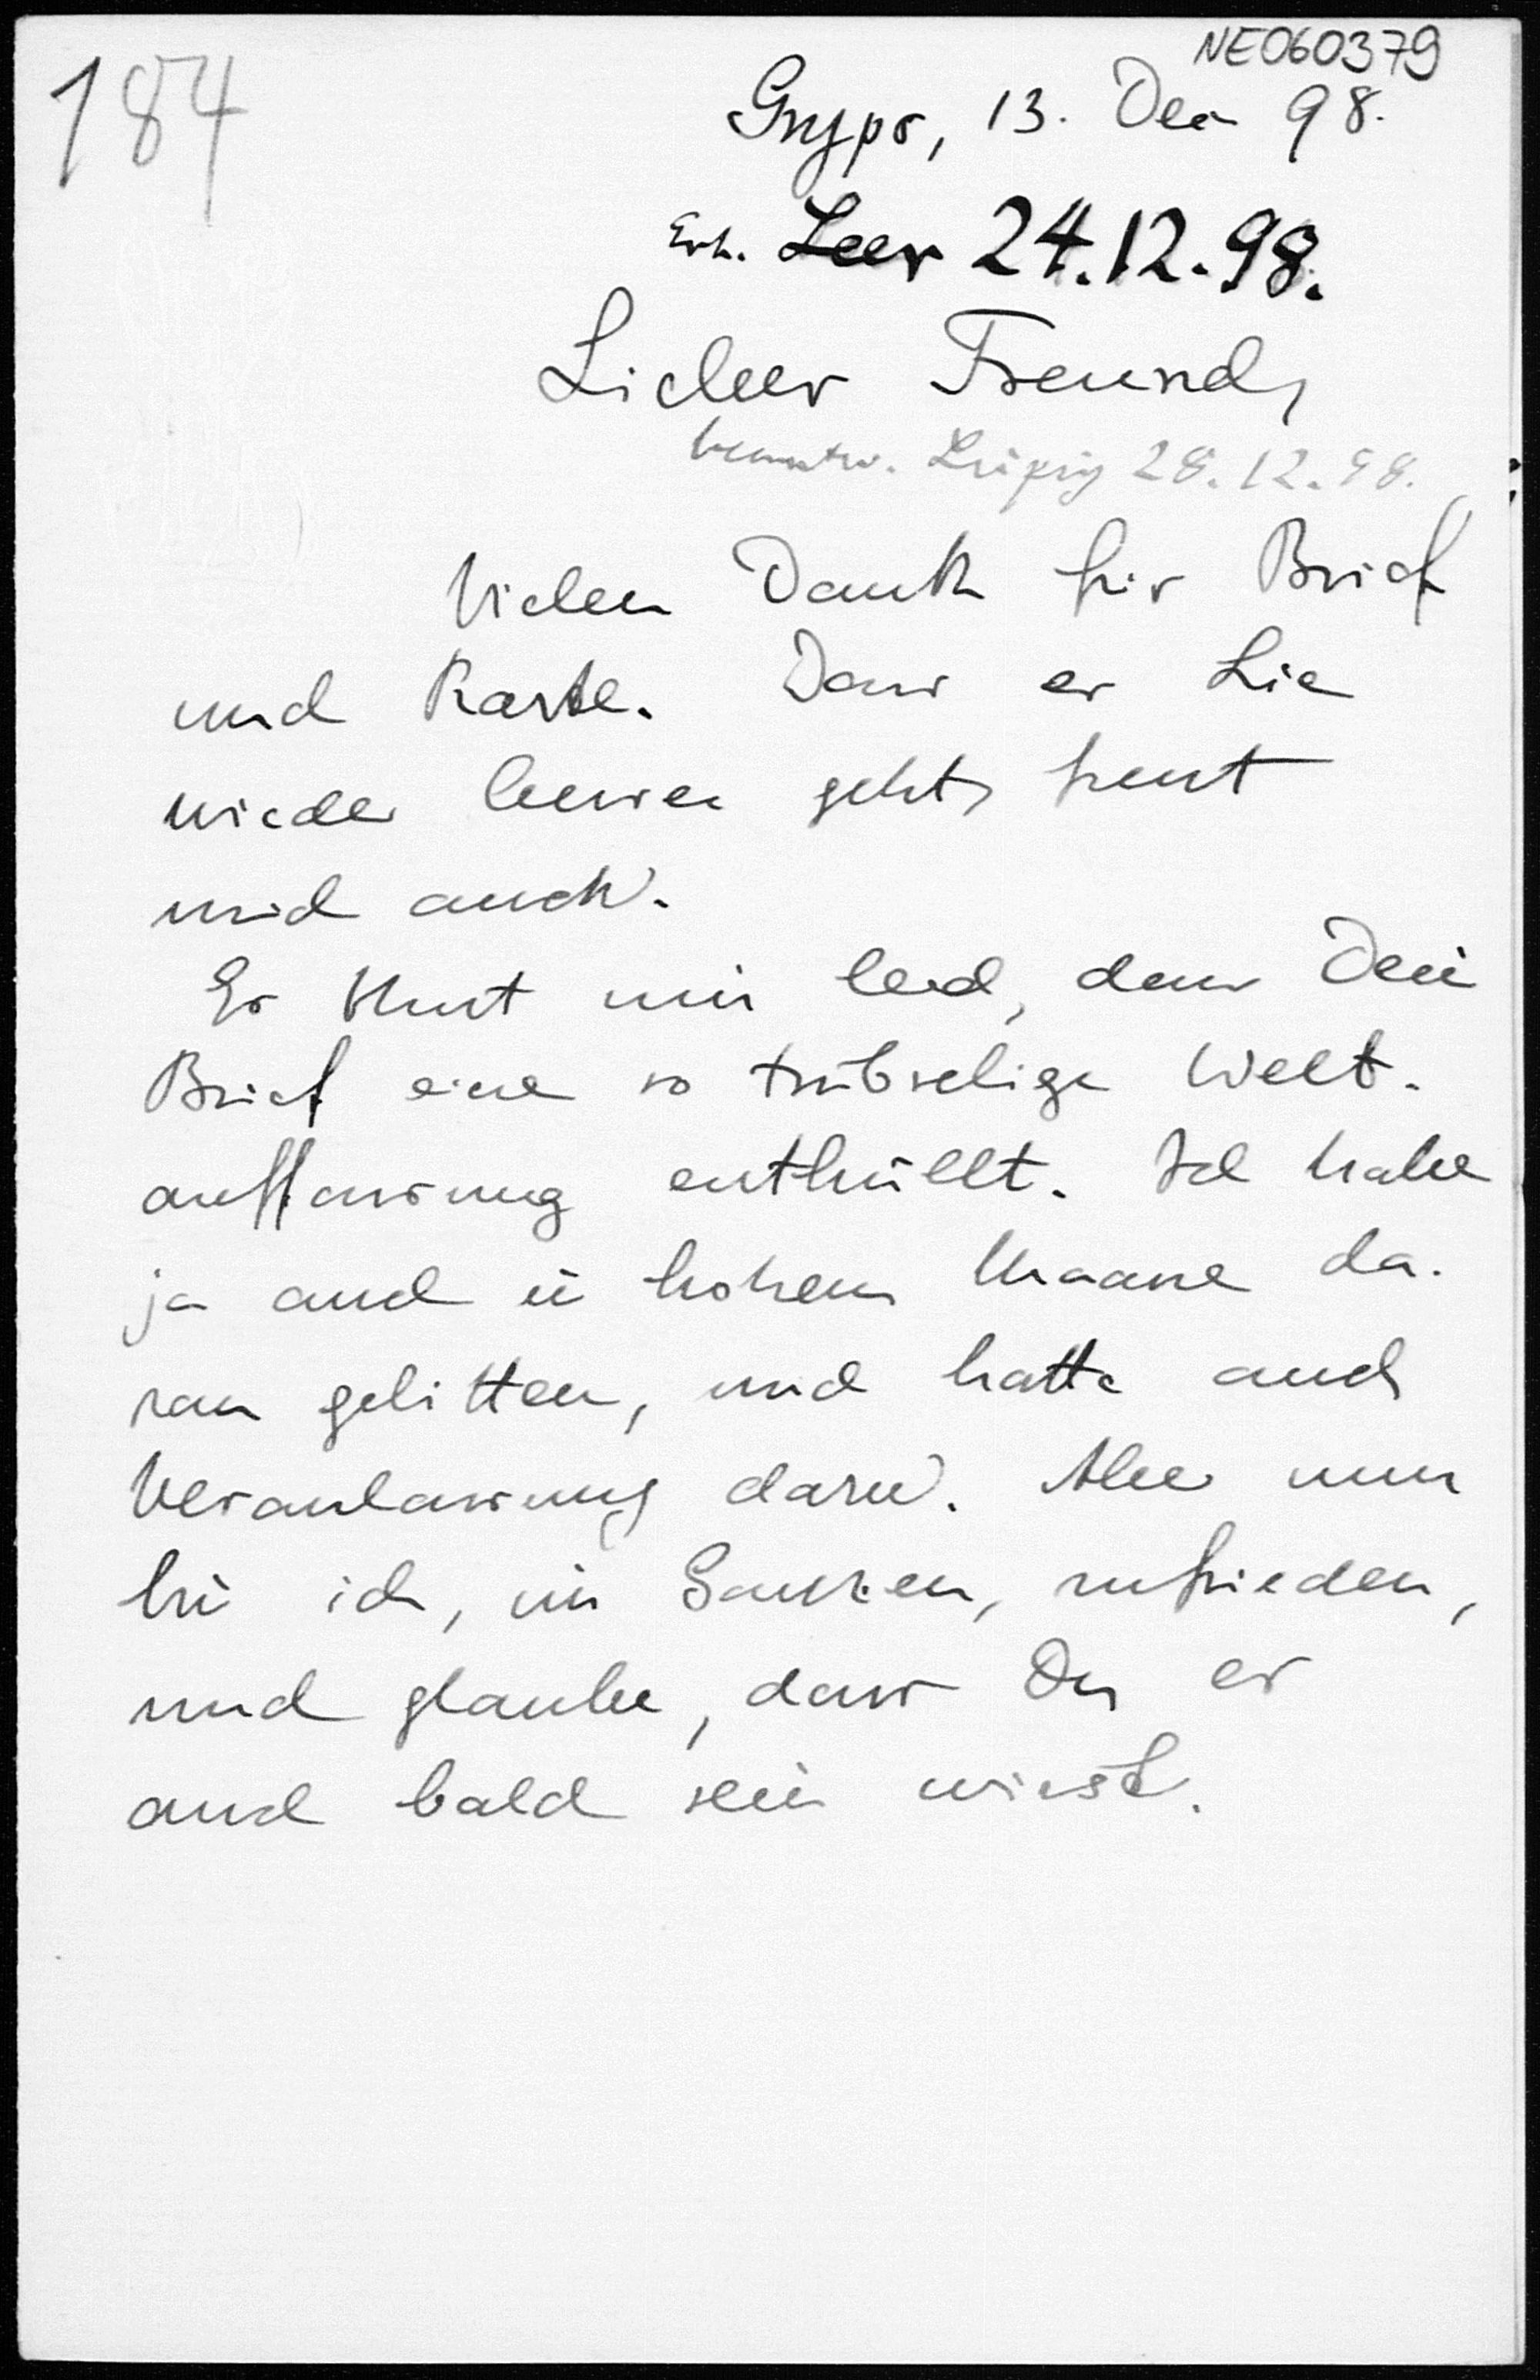 NE060379
184
Gryps, 13. Dec 98.
Erh. Leer 24.12.98.
Lieber Freund,
beantw. Leipzig 28.12.98.
Vielen Dank für Brief
und Karte. Dass es Lie
wieder besser geht, freut
mich auch.
Es thut mir leid, dass Dein
Brief eine so trübselige Welt-
auffassung enthüllt. Ich habe
ja auch in hohem Maasse da-
ran gelitten, und hatte auch
Veranlassung dazu. Aber nun
bin ich, im Ganzen, zufrieden,
und glaube, dass Du es
auch bald sein wirst.